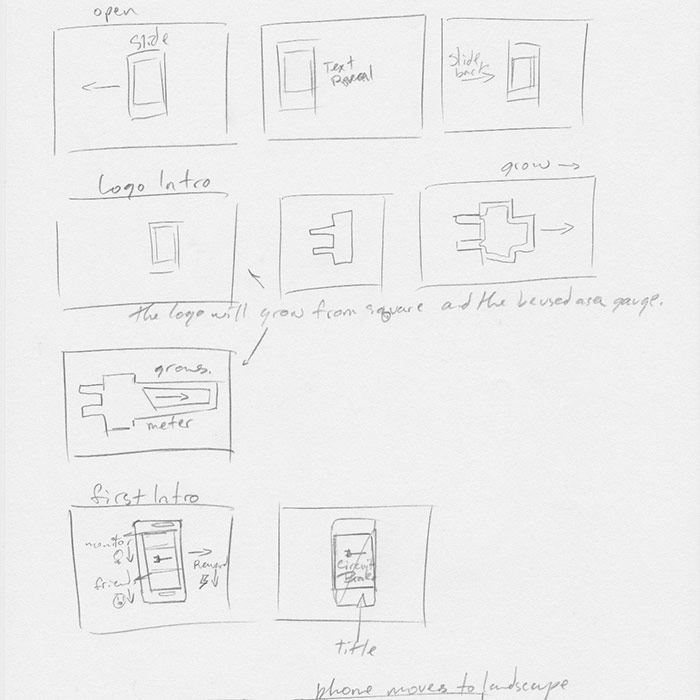 open
Slide
Text
Reveal
Slide
back
Logo Intro
grow
the logo will grow from square and the be used as a gauge.
grows.
meter
first Intro
monitor
friend
Circuit
title
phone moves to landscape